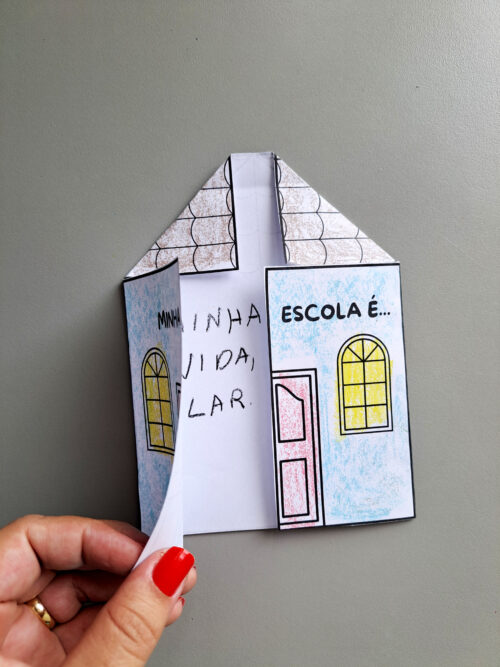 MINHA
ESCOLA É...
INHA
VIDA,
LAR.